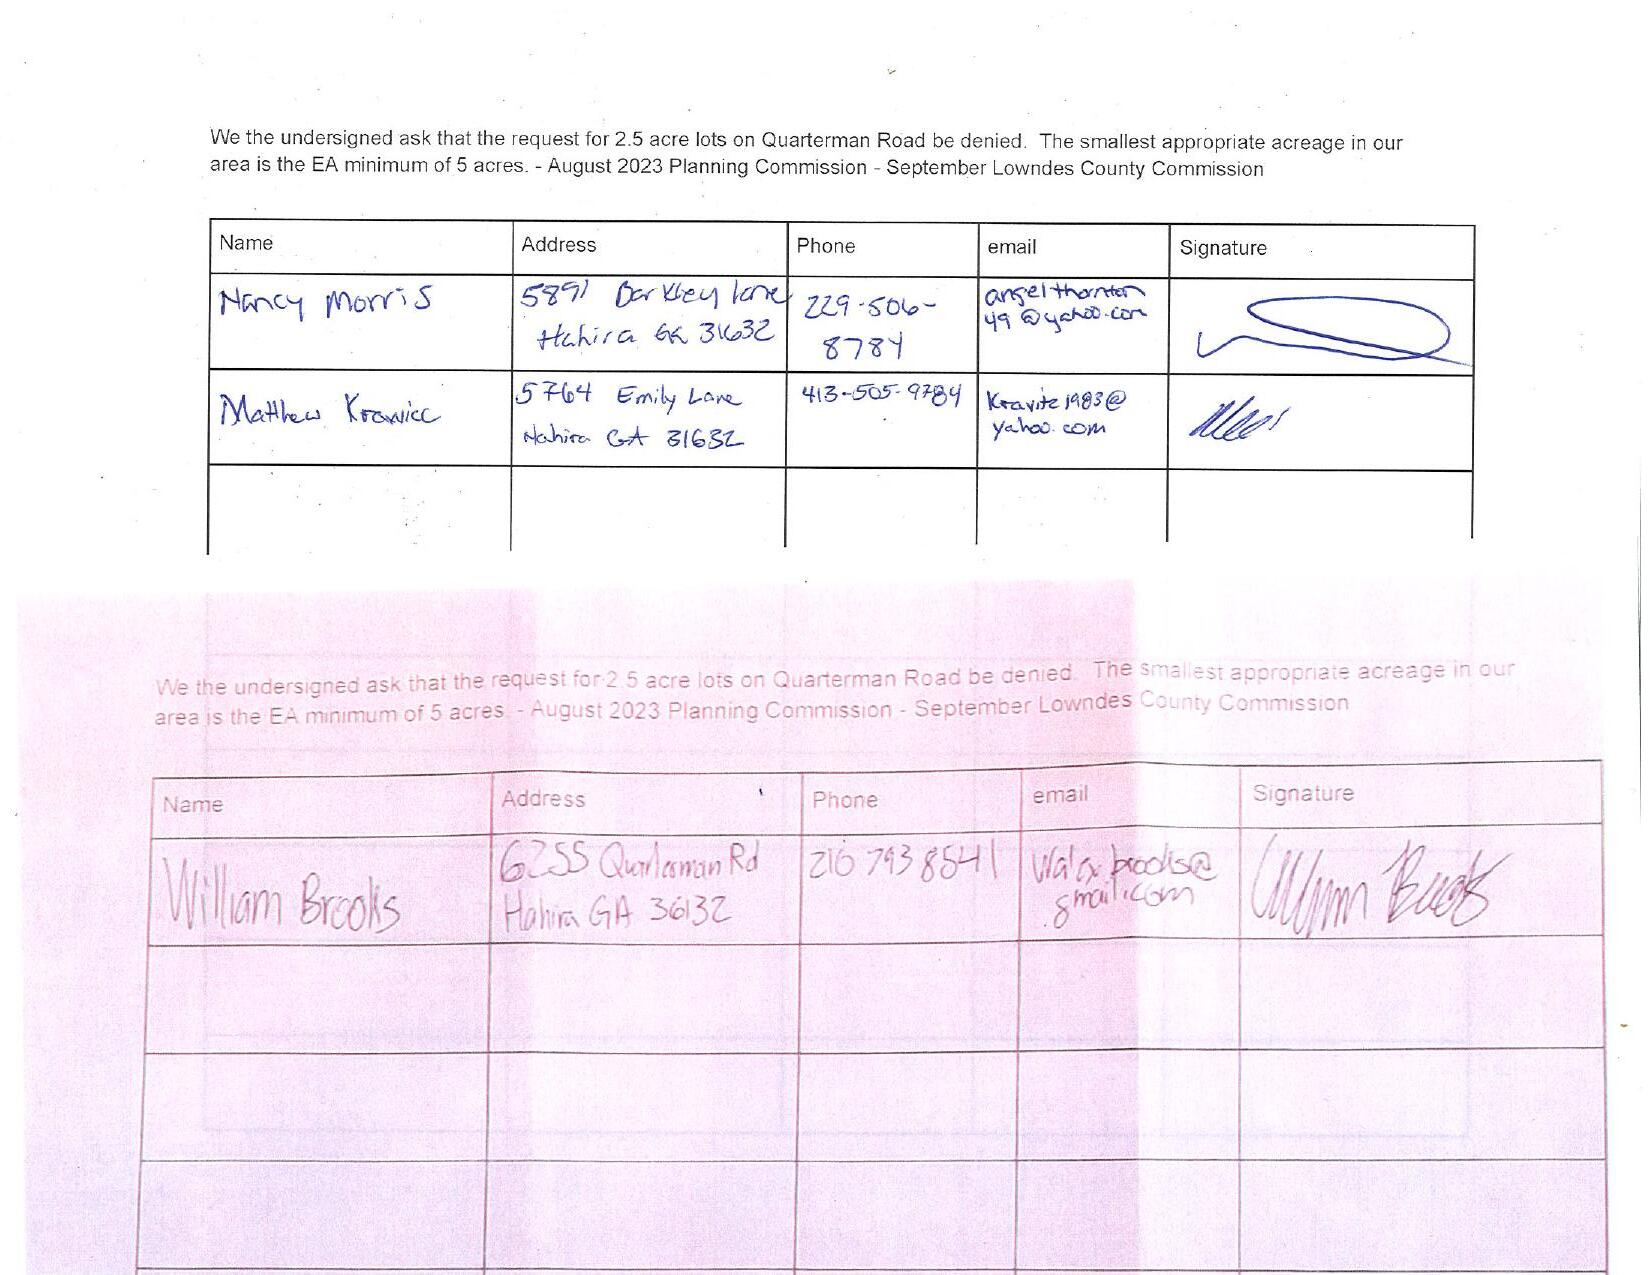 We the undersigned ask that the request for 2.5 acre lots on Quarterman Road be denied. The smallest appropriate acreage in our
area is the EA minimum of 5 acres. - August 2023 Planning Commission - September Lowndes County Commission
Name Address Phone email Signature
Nancy Morris 5891 Barkley lane 229-506- angelthornton
Hahira GA 31632 8784 49@yahoo.com
Matthew 5764 Emily Lane 413-505-9784 Kravitz1983@
Hahira GA 31632 yahoo.com
We the undersigned ask that the request for 2.5 acre lots on Quarterman Road be denied. The smallest appropriate acreage in our
area is the EA minimum of 5 acres. - August 2023 Planning Commission - September Lowndes County Commission
Name Address Phone email Signature
William Brooks 6255 Quarterman Rd 216 793 8541 brooks@
Hahira GA 36132 gmail.com